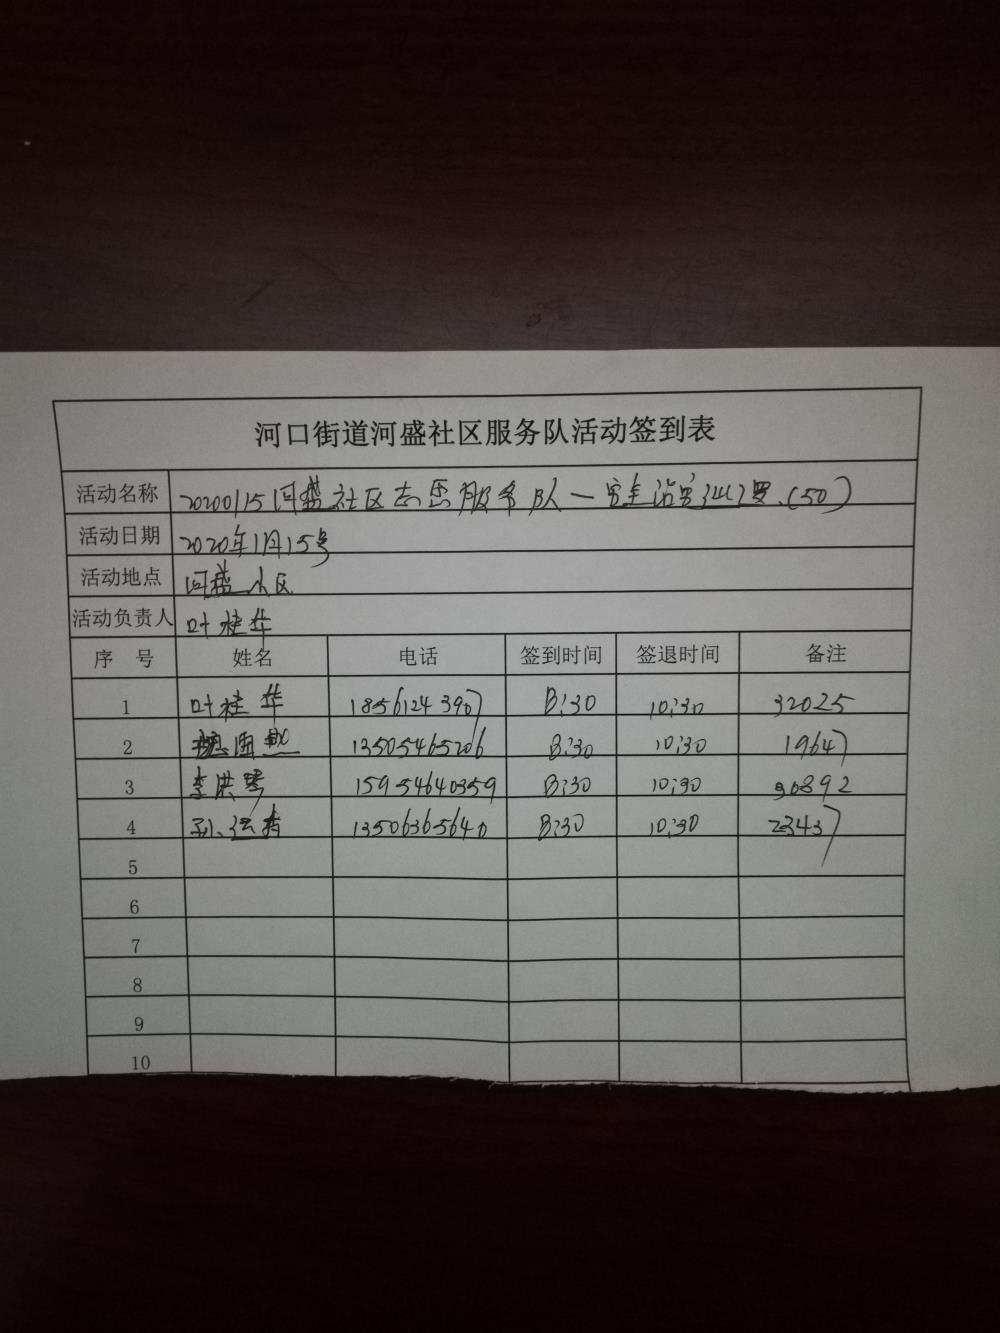 河口街道河盛社区服务队活动签到表
活动名称 20200115河盛社区志愿服务队一 (50)
活动日期 2020年1月15号
活动地点 河盛小区
活动负责人 叶桂华
序 号 姓名 电话 签到时间 签退时间 备注
1 叶桂华 18561243907 8:30 10:30 32025
2 13505465206 8:30 10:30 19647
3 李洪琴 15954640359 8:30 10:30 30892
4 孙 13506365640 8:30 10:30 23437
5
6
7
8
9
10